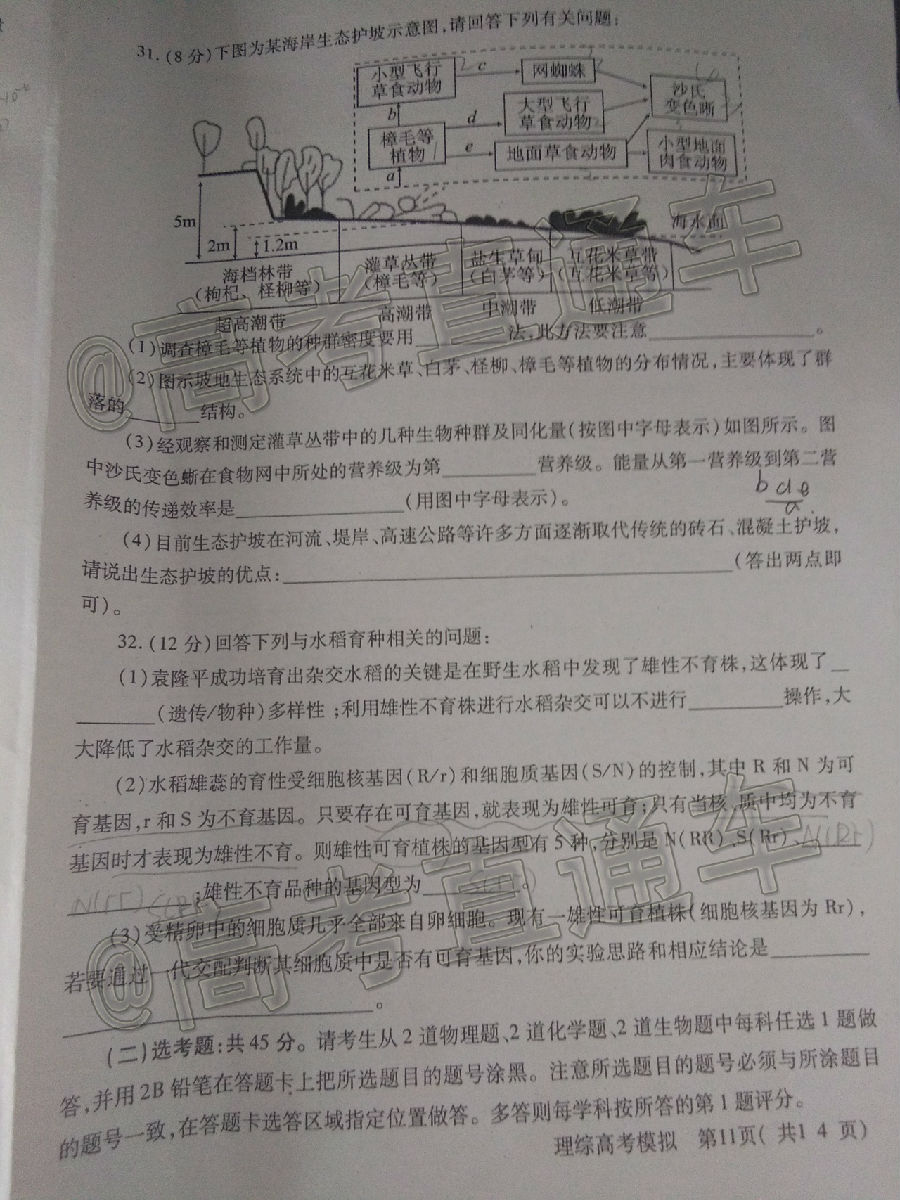 31.(8分)下图为某海岸生态护坡示意图,请回答下列有关问题:
小型飞行
草食动物
c
网蜘蛛
沙氏
变色蜥
b
d
大型飞行
草食动物
樟毛等
植物
e
地面草食动物
小型地面
肉食动物
a
5m
2m
1.2m
海水面
海档林带
(枸杞、柽柳等)
灌草丛带
(樟毛等)
盐生草甸
(白茅等)
互花米草带
(互花米草等)
超高潮带
高潮带
中潮带
低潮带
(1)调查樟毛等植物的种群密度要用________法,此方法要注意________。
(2)图示坡地生态系统中的互花米草、白茅、柽柳、樟毛等植物的分布情况,主要体现了群
落的______结构。
(3)经观察和测定灌草丛带中的几种生物种群及同化量(按图中字母表示)如图所示。图
中沙氏变色蜥在食物网中所处的营养级为第________营养级。能量从第一营养级到第二营
养级的传递效率是______________(用图中字母表示)。
b d e
a
(4)目前生态护坡在河流、堤岸、高速公路等许多方面逐渐取代传统的砖石、混凝土护坡,
请说出生态护坡的优点:________________________________(答出两点即
可)。
32.(12分)回答下列与水稻育种相关的问题:
(1)袁隆平成功培育出杂交水稻的关键是在野生水稻中发现了雄性不育株,这体现了__
______(遗传/物种)多样性;利用雄性不育株进行水稻杂交可以不进行________操作,大
大降低了水稻杂交的工作量。
(2)水稻雄蕊的育性受细胞核基因(R/r)和细胞质基因(S/N)的控制,其中R和N为可
育基因,r和S为不育基因。只要存在可育基因,就表现为雄性可育;只有当核、质中均为不育
基因时才表现为雄性不育。则雄性可育植株的基因型有5种,分别是N(RR)、S(Rr)、N(Rr)
N(rr) S(RR);雄性不育品种的基因型为 S(rr) 。
(3)受精卵中的细胞质几乎全部来自卵细胞。现有一雄性可育植株(细胞核基因为Rr),
若要通过一代交配判断其细胞质中是否有可育基因,你的实验思路和相应结论是________
________________________。
(二)选考题:共45分。请考生从2道物理题、2道化学题、2道生物题中每科任选1题做
答,并用2B铅笔在答题卡上把所选题目的题号涂黑。注意所选题目的题号必须与所涂题目
的题号一致,在答题卡选答区域指定位置做答。多答则每学科按所答的第1题评分。
理综高考模拟 第11页(共14页)
@高考直通车
@高考直通车